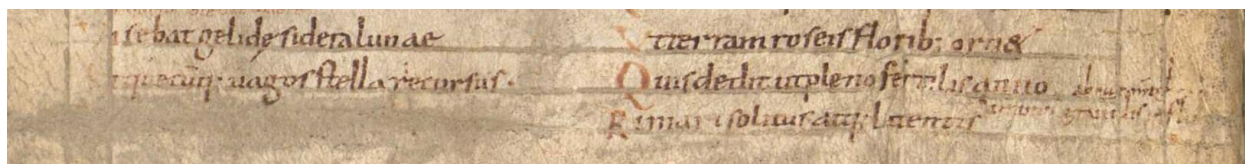 isebat gelidę sidera lunae
tquecūq; uagos stella recursus.
Vt terram roseis florib; orn&
Quis dedit ut pleno fertilis anno
Rimari solitus atq; latentis